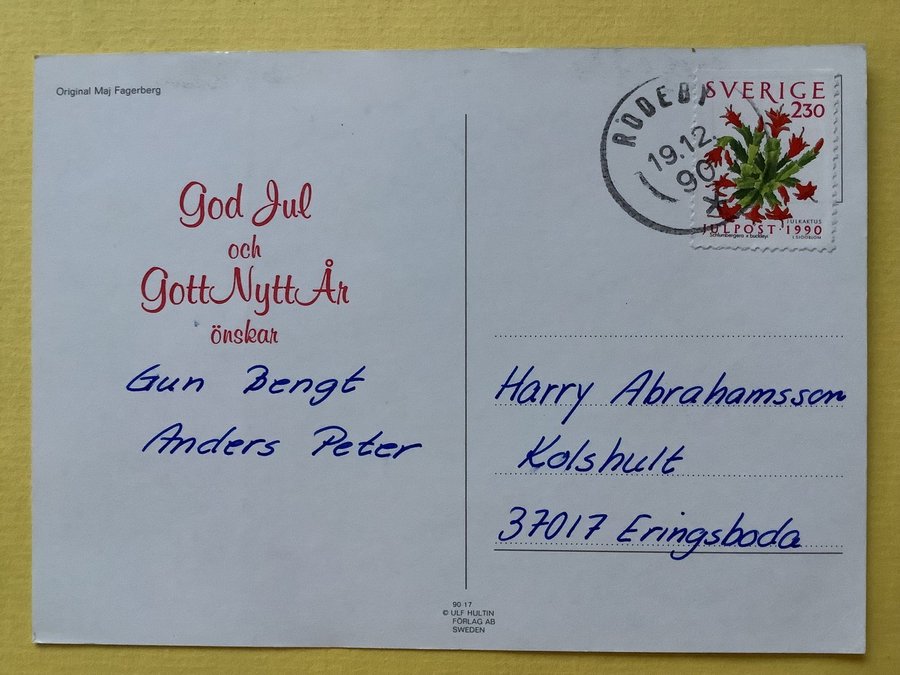 Original Maj Fagerberg
God Jul
och
Gott Nytt År
önskar
Gun Bengt
Anders Peter
RÖDEBY
19.12.
90
SVERIGE
230
JULKAKTUS
Schlumbergera x buckleyi
JULPOST·1990
Harry Abrahamsson
Kolshult
37017 Eringsboda
90 17
© ULF HULTIN
FÖRLAG AB
SWEDEN